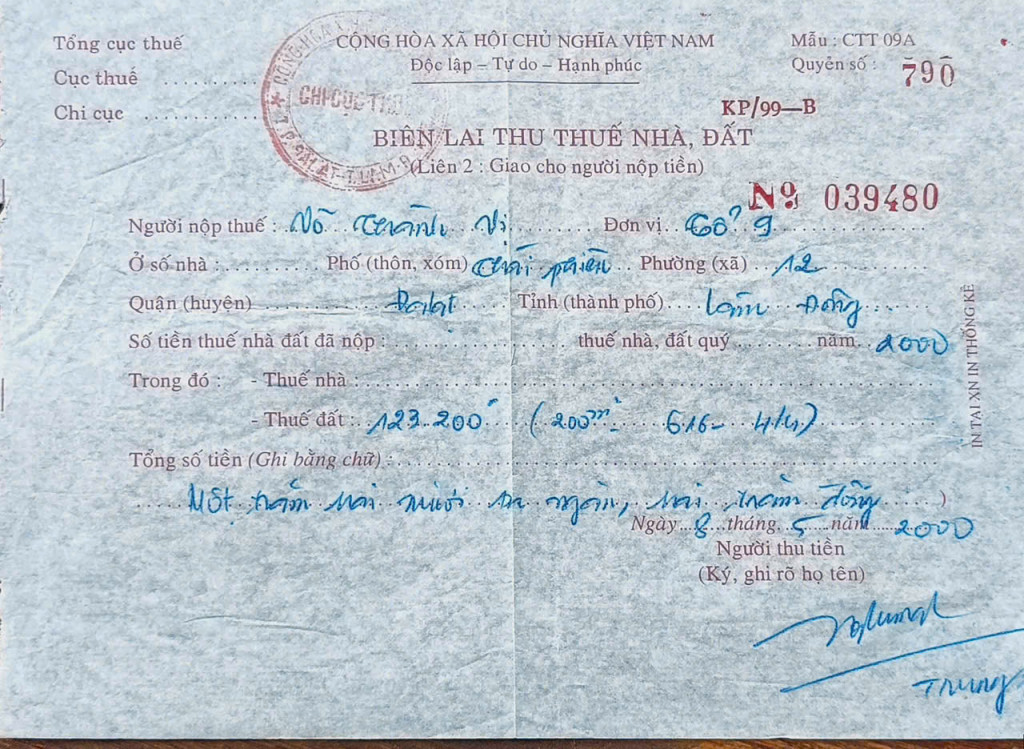 Tổng cục thuế
Cục thuế ............
Chi cục ............
CỘNG HÒA XÃ HỘI CHỦ NGHĨA VIỆT NAM
Độc lập – Tự do – Hạnh phúc
Mẫu : CTT 09A
Quyển số : 790
CHI CỤC THUẾ
KP/99—B
BIÊN LAI THU THUẾ NHÀ, ĐẤT
(Liên 2 : Giao cho người nộp tiền)
Nº 039480
Người nộp thuế : Võ Thành Vị Đơn vị Tổ 9
Ở số nhà : ............ Phố (thôn, xóm) Thái phiên Phường (xã) 12
Quận (huyện) Dalat Tỉnh (thành phố) Lâm Đồng
Số tiền thuế nhà đất đã nộp : ............ thuế nhà, đất quý ......... năm 2000
Trong đó : - Thuế nhà : ............
- Thuế đất : 123.200 (200m² 616 - 4/4)
Tổng số tiền (Ghi bằng chữ) : ............
Một trăm hai mươi ba ngàn, hai trăm đồng )
Ngày 8 tháng 5 năm 2000
Người thu tiền
(Ký, ghi rõ họ tên)
Trung
IN TẠI XN IN THỐNG KÊ